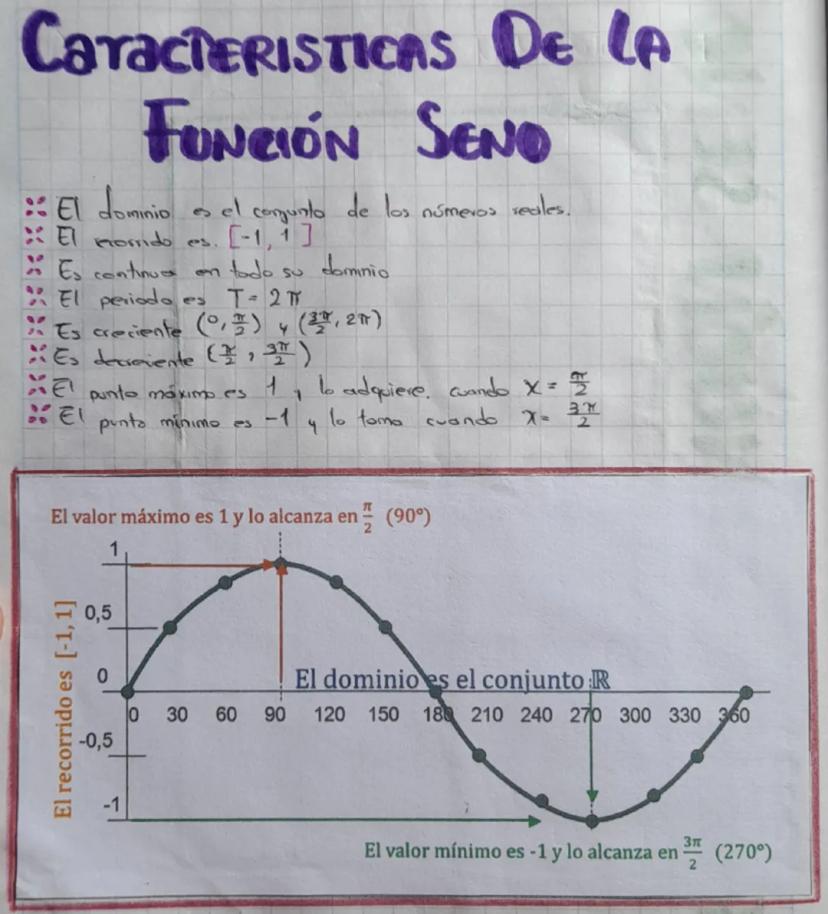 CaracTERISTICAS DE LA
FUNCIÓN SENO
El dominio es el conjunto de los números reales.
El recorrido es. [-1, 1]
Es continua en todo su dominio
El periodo es T= 2π
Es creciente (0, π/2) y (3π/2, 2π)
Es decreciente (π/2, 3π/2)
El punto máximo es 1, lo adquiere. cuando x = π/2
El punto mínimo es -1 y lo toma cuando x= 3π/2
El valor máximo es 1 y lo alcanza en π/2 (90°)
1
0,5
0
-0,5
-1
El recorrido es [-1, 1]
El dominio es el conjunto ℝ
0 30 60 90 120 150 180 210 240 270 300 330 360
El valor mínimo es -1 y lo alcanza en 3π/2 (270°)